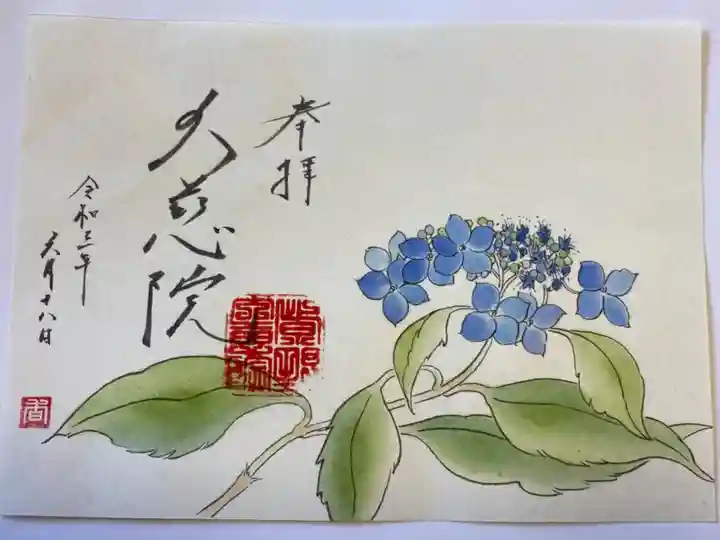 奉拝
大慈院
令和三年
六月十八日
香